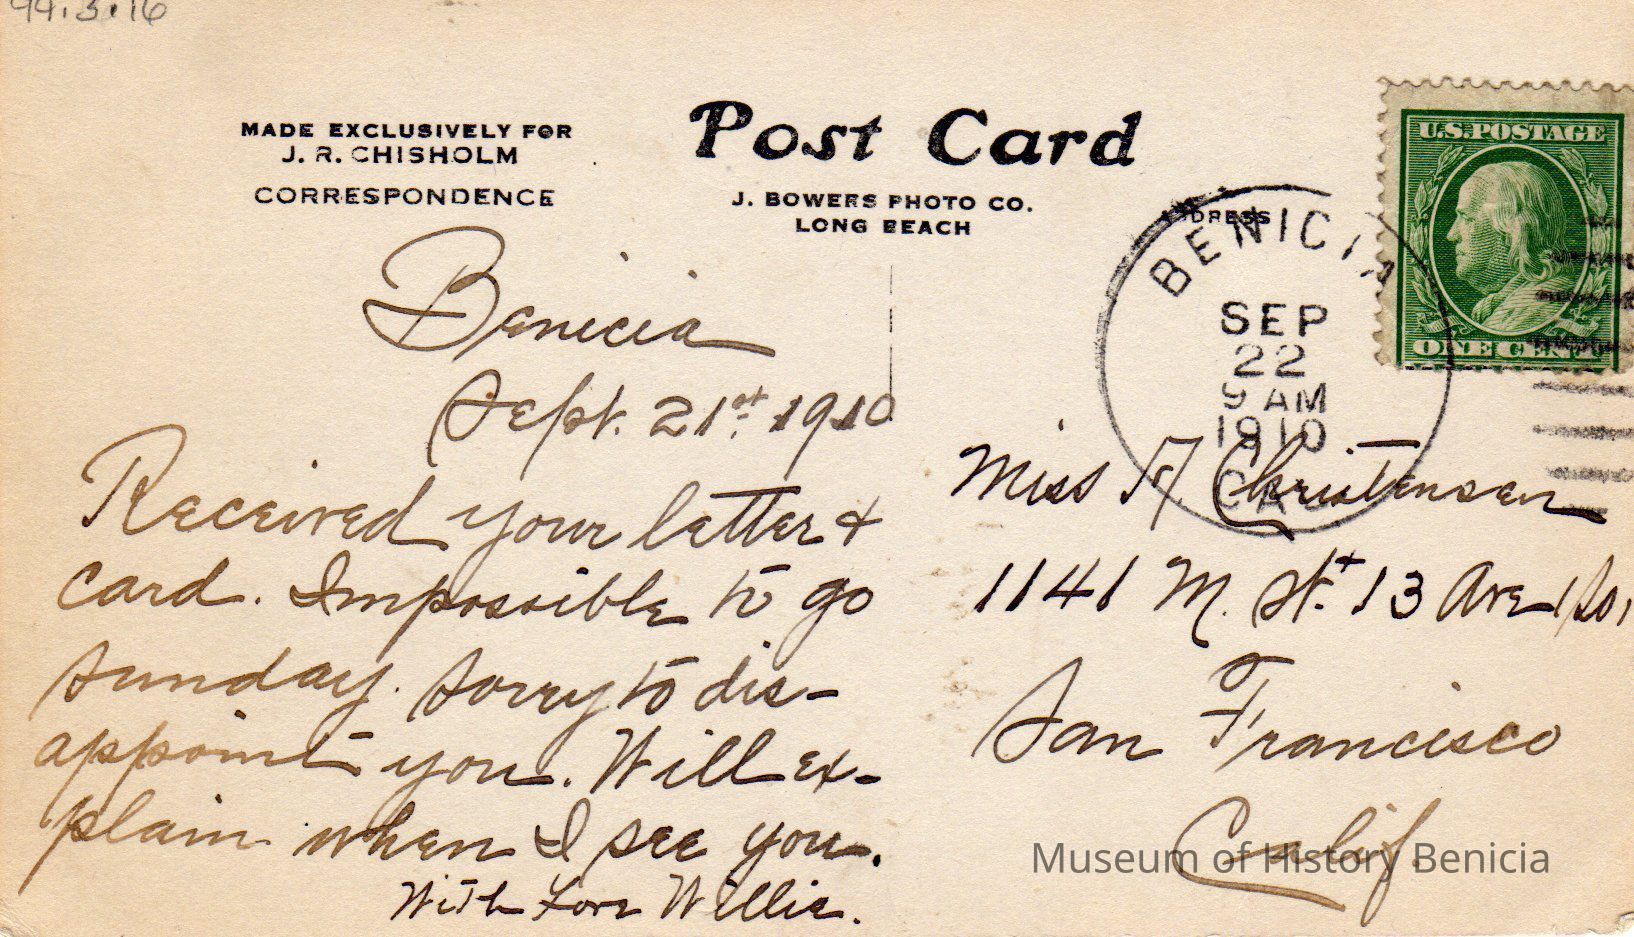 94.3.16
MADE EXCLUSIVELY FOR
J. R. CHISHOLM
CORRESPONDENCE
Post Card
J. BOWERS PHOTO CO.
LONG BEACH
ADDRESS
BENICIA
SEP
22
9 AM
1910
CAL
U.S. POSTAGE
ONE CENT
Benicia
Sept. 21st. 1910
Received your letter &
card. Impossible to go
Sunday. Sorry to dis-
appoint you. Will ex-
plain when I see you.
With Love Willie.
Miss A Christensen
1141 M. St. 13 Ave So.
San Francisco
Calif.
Museum of History Benicia